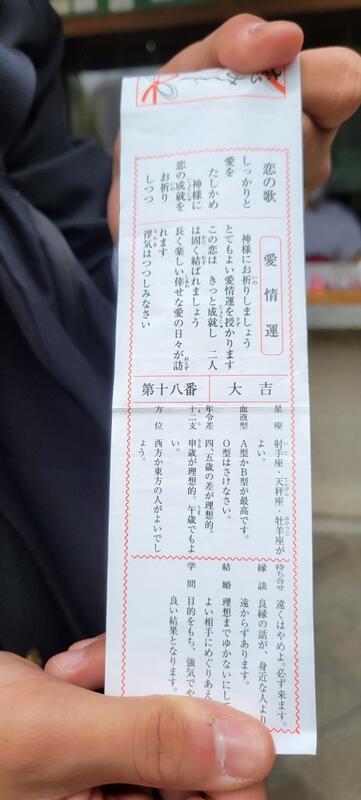 恋の歌
しっかりと
愛を
たしかめ
神様に
恋の成就を
お祈り
しつつ
愛情運
神様にお祈りしましょう
とてもよい愛情運を授かります
この恋は きっと成就し 二人
は固く結ばれましょう
長く楽しい倖せな愛の日々が訪
れます
浮気はつつしみなさい
大吉
第十八番
星座 射手座・天秤座・牡羊座が
よい。
血液型 A型かB型が最高です。
O型はさけなさい。
年令差 四、五歳の差が理想的。
十二支 申歳が理想的。午歳でもよ
い。
方位 西方か東方の人がよいでし
ょう。
待ち合せ 遠くはやめよ。必ず来ます。
縁談 良縁の話が、身近な人より
遠からずあります。
結婚 理想までゆかないにして
よい相手にめぐりあえ
学問 目的をもち、強気でや
良い結果となります。